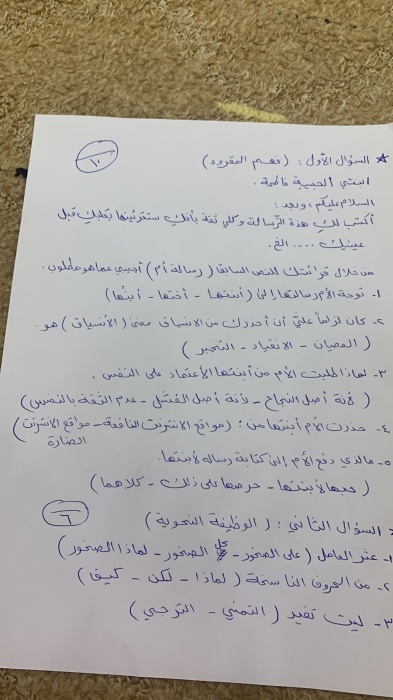 ١٠
* السؤال الأول : ( فهم المقروء )
ابنتي الحبيبة فاطمة .
السلام عليكم ، وبعد :
أكتب لكِ هذه الرسالة وكلي ثقة بأنكِ ستقرئينها بقلبكِ قبل
عينيكِ .... الخ .
من خلال قرائتك للنص السابق ( رسالة أم ) أجيبي عما هو مطلوب .
١- توجه الأم رسالتها إلى ( ابنتها - أختها - ابنها )
٢- كان لزاماً عليّ أن أحذرك من الانسياق معنى ( الأنسياق ) هو .
( العصيان - الانقياد - التجبر )
٣- لماذا طلبت الأم من أبنتها الأعتماد على النفس .
( لأنة أصل النجاح - لأنة أصل الفشل - عدم الثقة بالنفس )
٤- حذرت الأم أبنتها من : ( مواقع الانترنت النافعة - مواقع الانترنت
الضارة )
٥- مالذي دفع الأم إلى كتابة رساله لأبنتها .
( حبها لأبنتها - حرصها على ذلك - كلاهما )
السؤال الثاني : ( الوظيفة النحوية )
٦
١- عثر العامل ( على الصخور - كل الصخور - لماذا الصخور )
٢- من الحروف الناسخة ( لماذا - لكن - كيف )
٣- ليت تفيد ( التمني - الترجي )